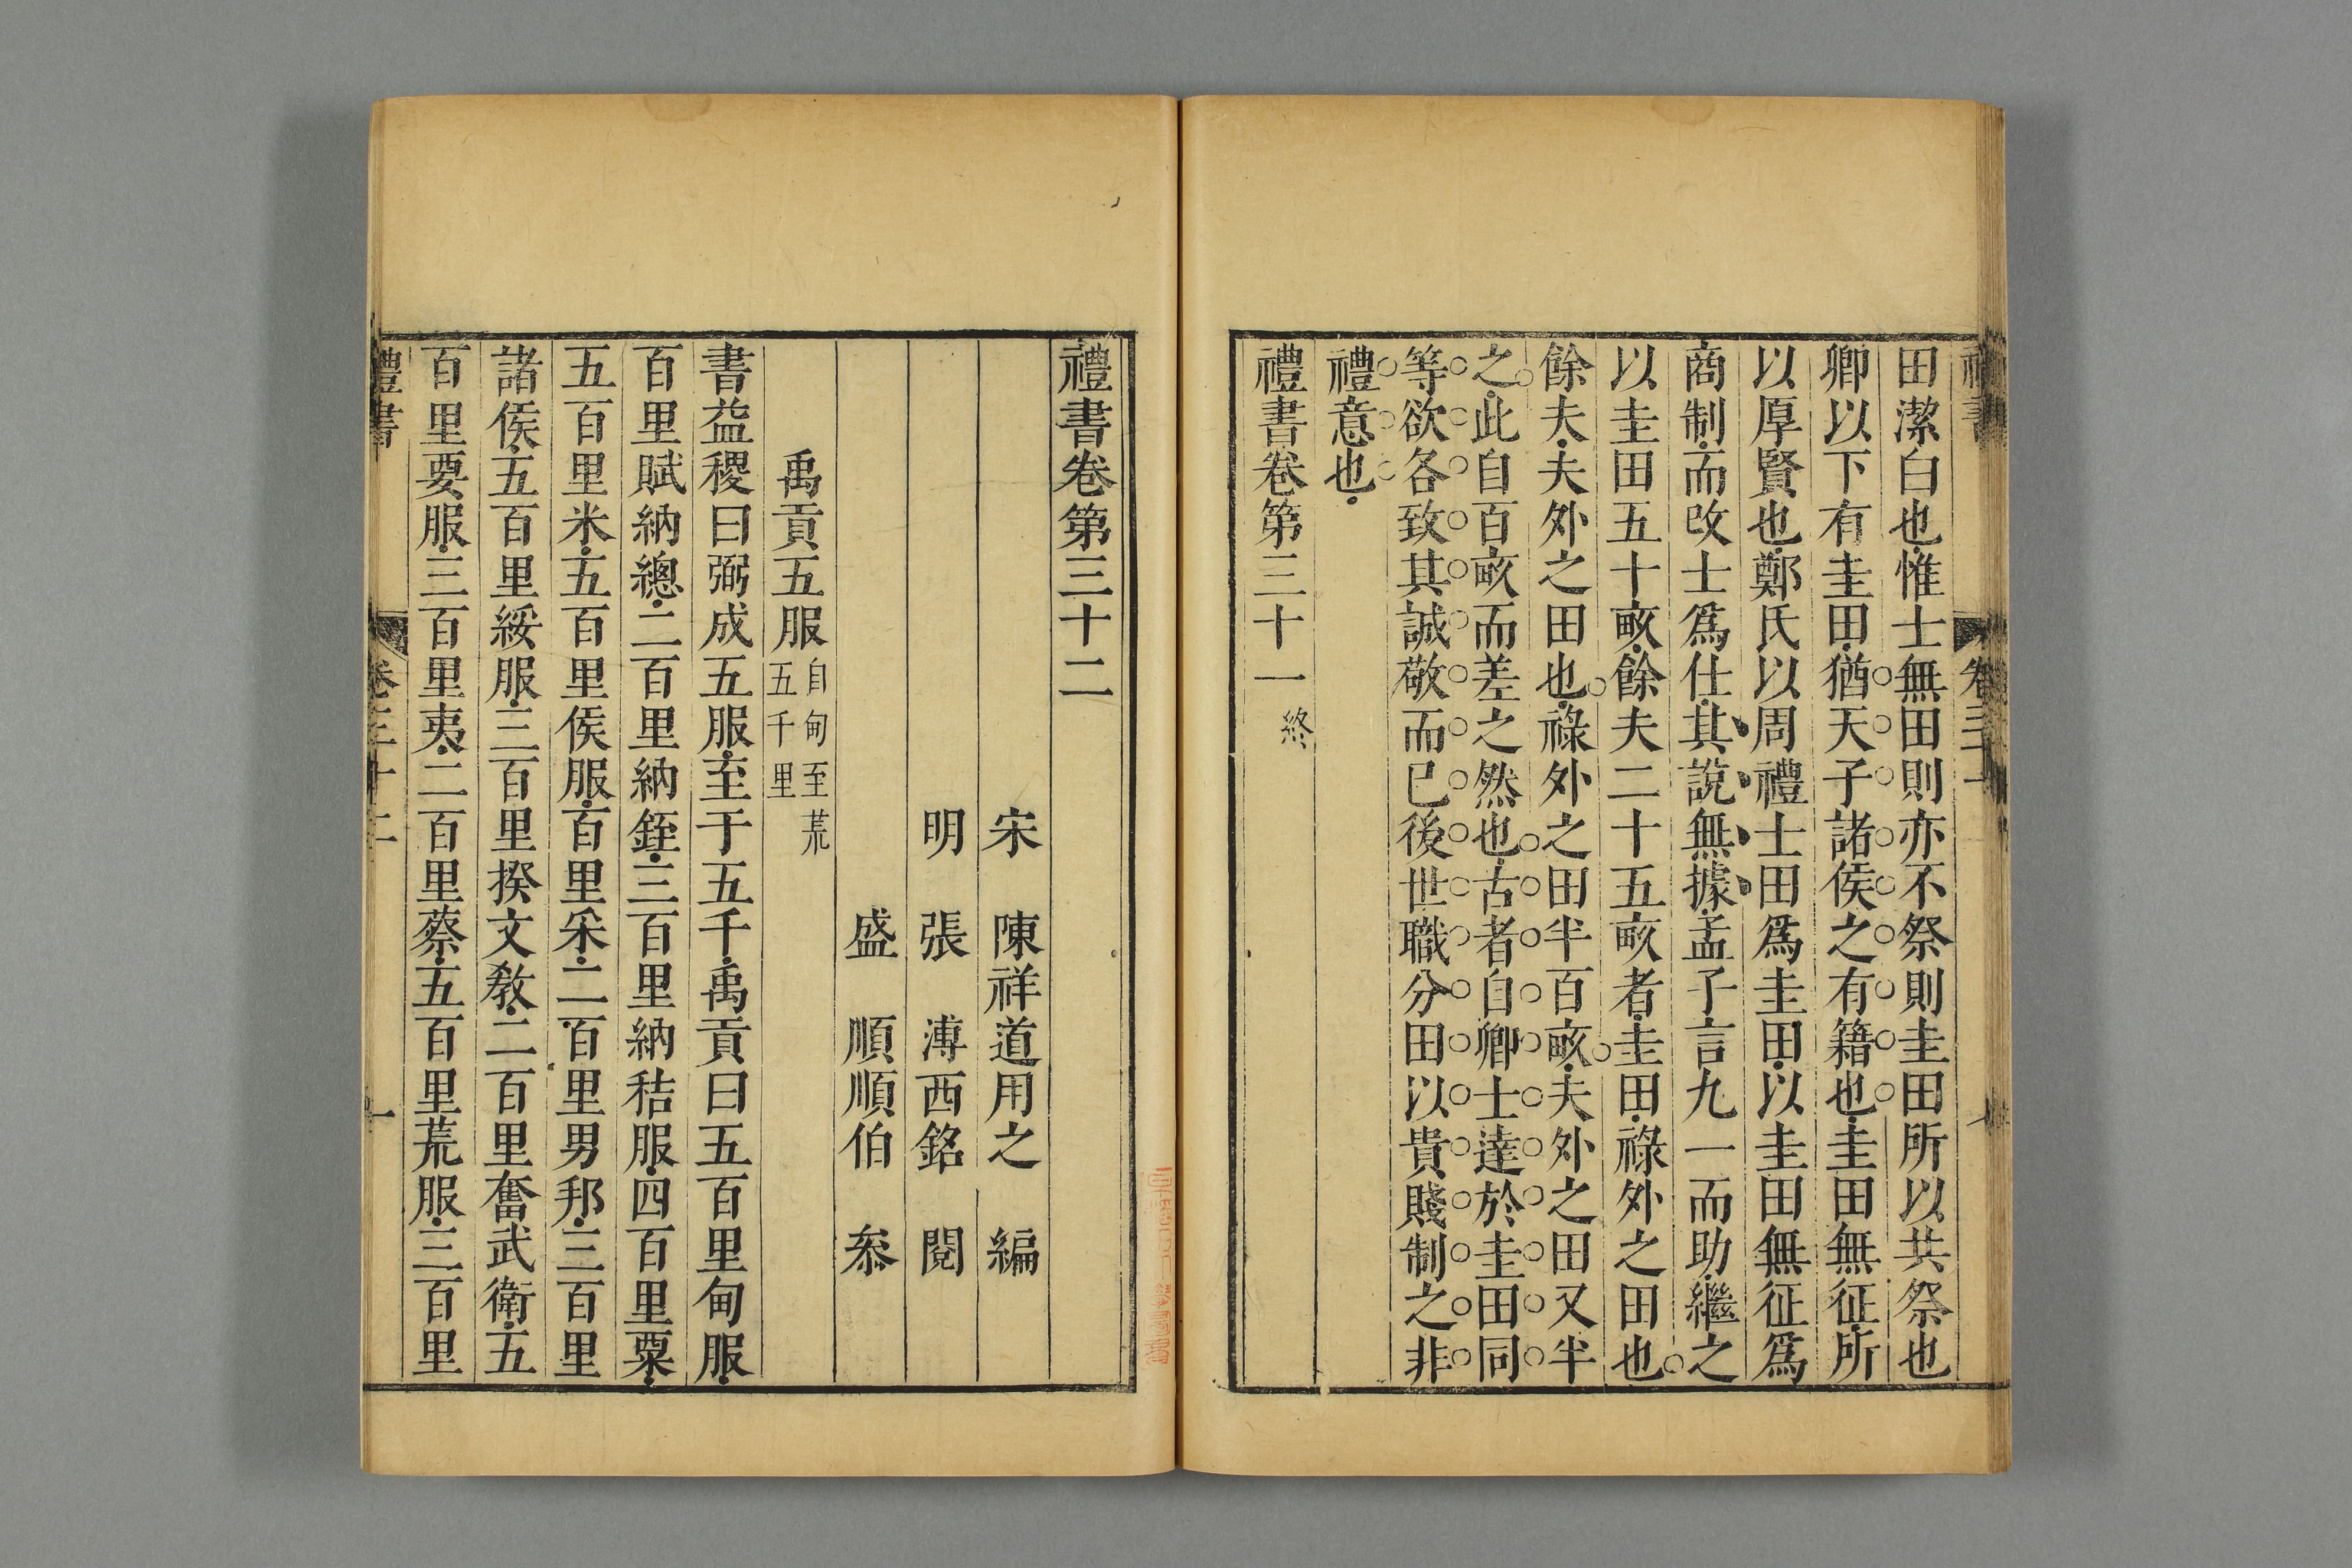 田潔白也惟士無田則亦不祭則圭田所以共祭也
卿以下有圭田猶天子諸侯之有籍也圭田無征所
以厚賢也鄭氏以周禮士田爲圭田以圭田無征爲
商制而攺士爲仕其說無據孟子言九一而助繼之
以圭田五十畝餘夫二十五畝者圭田祿外之田也
餘夫夫外之田也祿外之田半百畝夫外之田又半
之此自百畝而差之然也古者自卿士達於圭田同
等欲各致其誠敬而已後世職分田以貴賤制之非
禮意也
禮書卷第三十一 終
禮書卷第三十二
宋 陳祥道用之 編
明 張 溥西銘 閱
盛 順順伯 叅
禹貢五服 自甸至荒五千里
書益稷曰弼成五服至于五千禹貢曰五百里甸服
百里賦納總二百里納銍三百里納秸服四百里粟
五百里米五百里侯服百里采二百里男邦三百里
諸侯五百里綏服三百里揆文敎二百里奮武衛五
百里要服三百里夷二百里蔡五百里荒服三百里
禮書 卷三十二 一